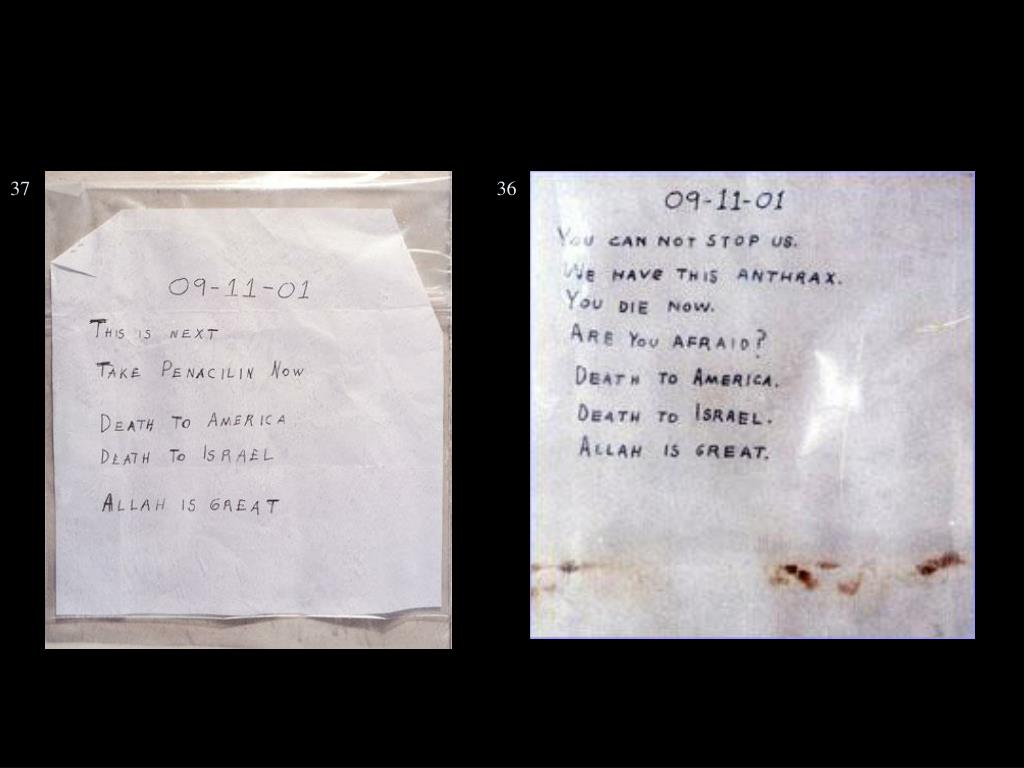 37
09-11-01
THIS IS NEXT
TAKE PENACILIN NOW
DEATH TO AMERICA
DEATH TO ISRAEL
ALLAH IS GREAT
36
09-11-01
YOU CAN NOT STOP US.
WE HAVE THIS ANTHRAX.
YOU DIE NOW.
ARE YOU AFRAID?
DEATH TO AMERICA.
DEATH TO ISRAEL.
ALLAH IS GREAT.